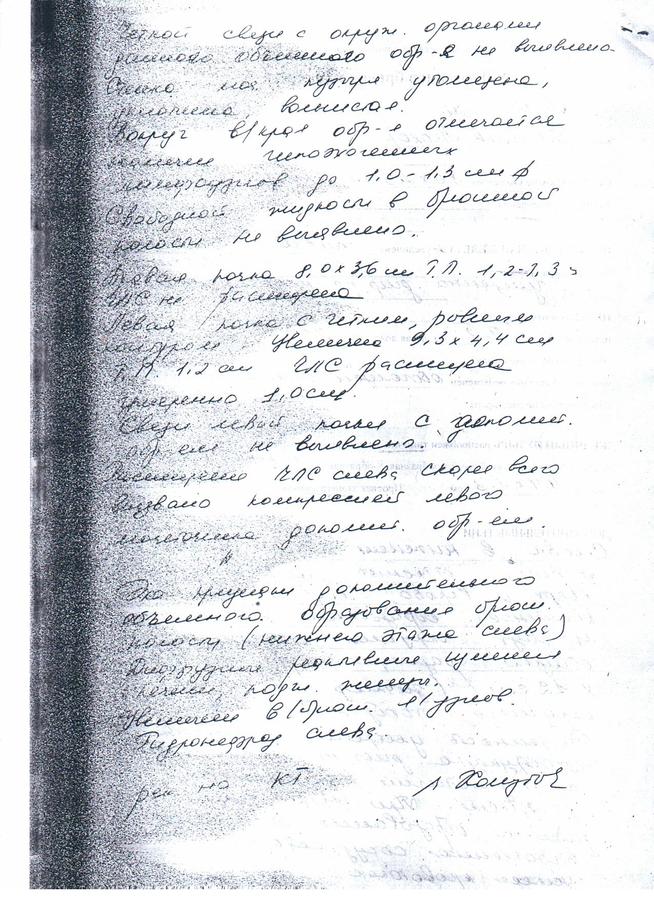 Четкой связи с окруж. органами
данного объемного обр-я не выявлено
Стенка моч. пузыря утолщена,
волнистая.
Вокруг в/края обр-я отмечается
наличие гипоэхогенных
лимфоузлов до 1,0-1,3 см ϕ
Свободной жидкости в брюшной
полости не выявлено.
Правая почка 8,0 х 3,6 см Т.П. 1,2-1,3
ЧЛС не расширена
Левая почка с четким, ровным
контуром. Увеличена 9,3 х 4,4 см
Т.П 1,2 см ЧЛС расширена
умеренно 1,0 см.
Связи левой почки с дополнит.
обр-ем не выявлено
Расширение ЧЛС слева скорее всего
вызвано компрессией левого
мочеточника дополнит. обр-ем.
Эхо признаки дополнительного
объемного образования брюш.
полости (нижнего этажа слева)
Диффузные реактивные изменения
печени, подж. железы.
Увеличение в/брюш. л/узлов.
Гидронефроз слева.
рек на КТ